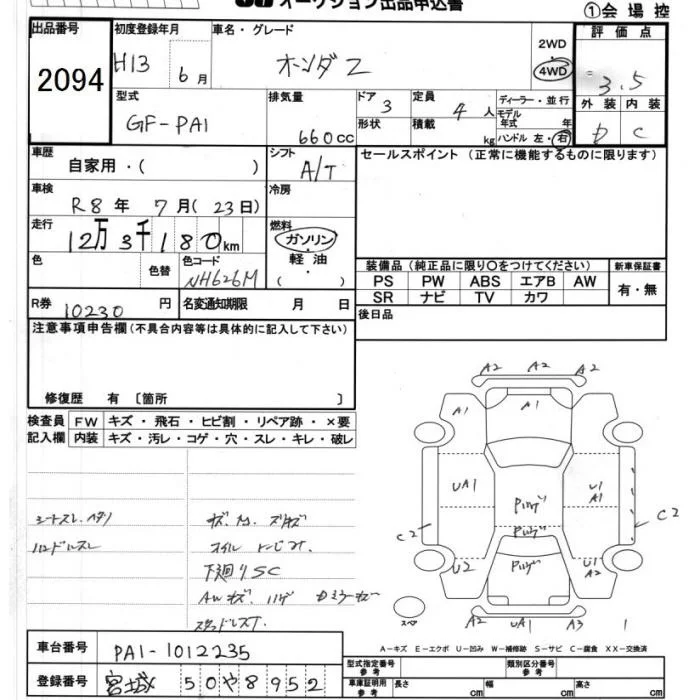 オークション出品申込書
①会場控
出品番号 初度登録年月 車名・グレード 評価点
2094 H13 6月 ホンダZ 2WD 4WD 3.5
型式 排気量 ドア 3 定員 4人 ディーラー・並行 外装 内装
GF-PA1 660cc 形状 積載 kg モデル年式 年 D C
ハンドル 左・右
車歴 自家用・( ) シフト A/T セールスポイント (正常に機能するものに限ります)
車検 R8年 7月(23日) 冷房
走行 12万3千180km 燃料 ガソリン
軽油
( ・ )
色 色替 色コード NH626M
装備品(純正品に限り〇をつけてください) 新車保証書
PS PW ABS エアB AW 有・無
SR ナビ TV カワ
R券 10230円 名変通知期限 月 日 後日品
注意事項申告欄(不具合内容等は具体的に記入して下さい)
修復歴 有 〔箇所 〕
検査員 FW キズ・飛石・ヒビ割・リペア跡・×要
記入欄 内装 キズ・汚レ・コゲ・穴・スレ・キレ・破レ
A2 A2 A2
A1 A1
UA1 U1 A1
C2 C2
U2 U1 A2
A2 UA1 A3
シートスレ、ヘタリ
ハンドルスレ
下廻りSC
スペア 1
A-キズ E-エクボ U-凹み W-補修跡 S-サビ C-腐食 XX-交換済
車台番号 PA1-1012235
登録番号 宮城 50や8952
型式指定番号 参考 類別区分番号 参考
車庫証明用 参考 長さ cm 幅 cm 高さ cm